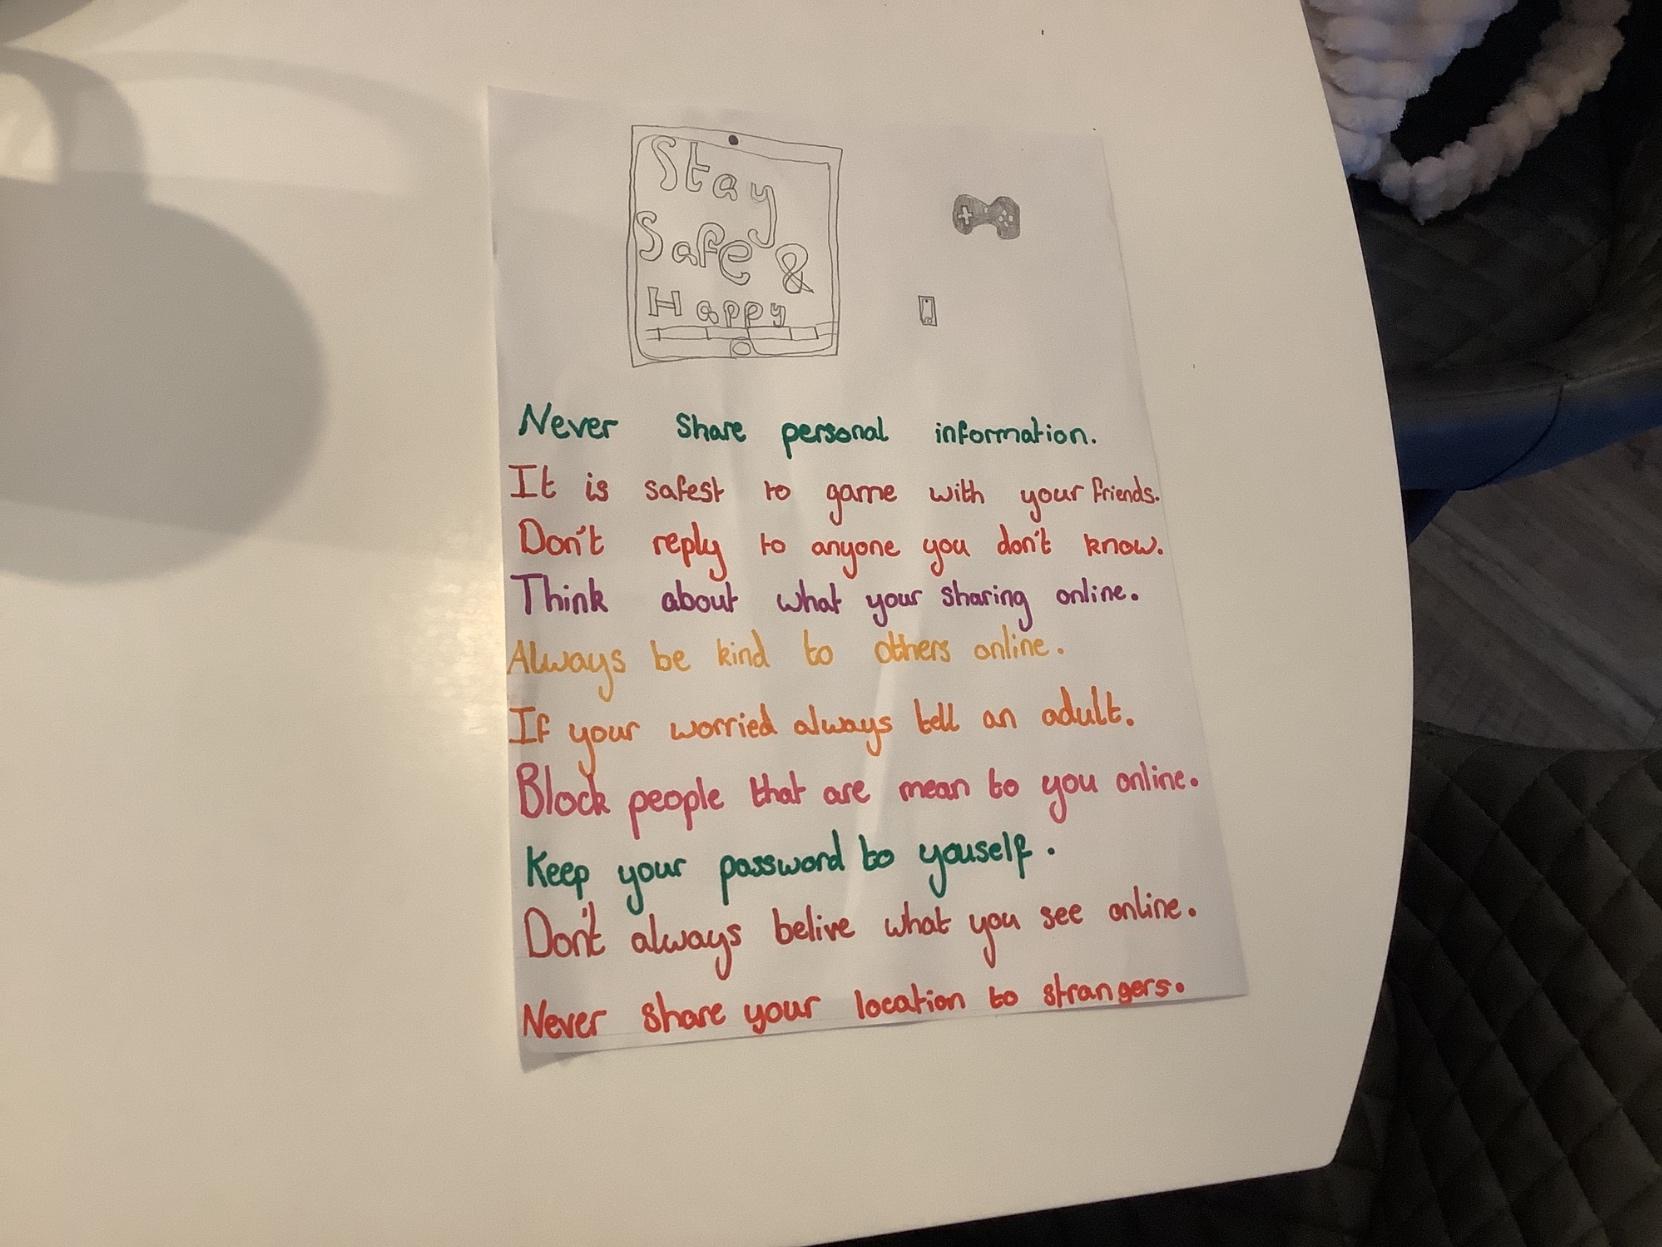 Stay
Safe &
Happy
Never share personal information.
It is safest to game with your friends.
Don't reply to anyone you don't know.
Think about what your sharing online.
Always be kind to others online.
If your worried always tell an adult.
Block people that are mean to you online.
Keep your password to youself.
Don't always belive what you see online.
Never share your location to strangers.